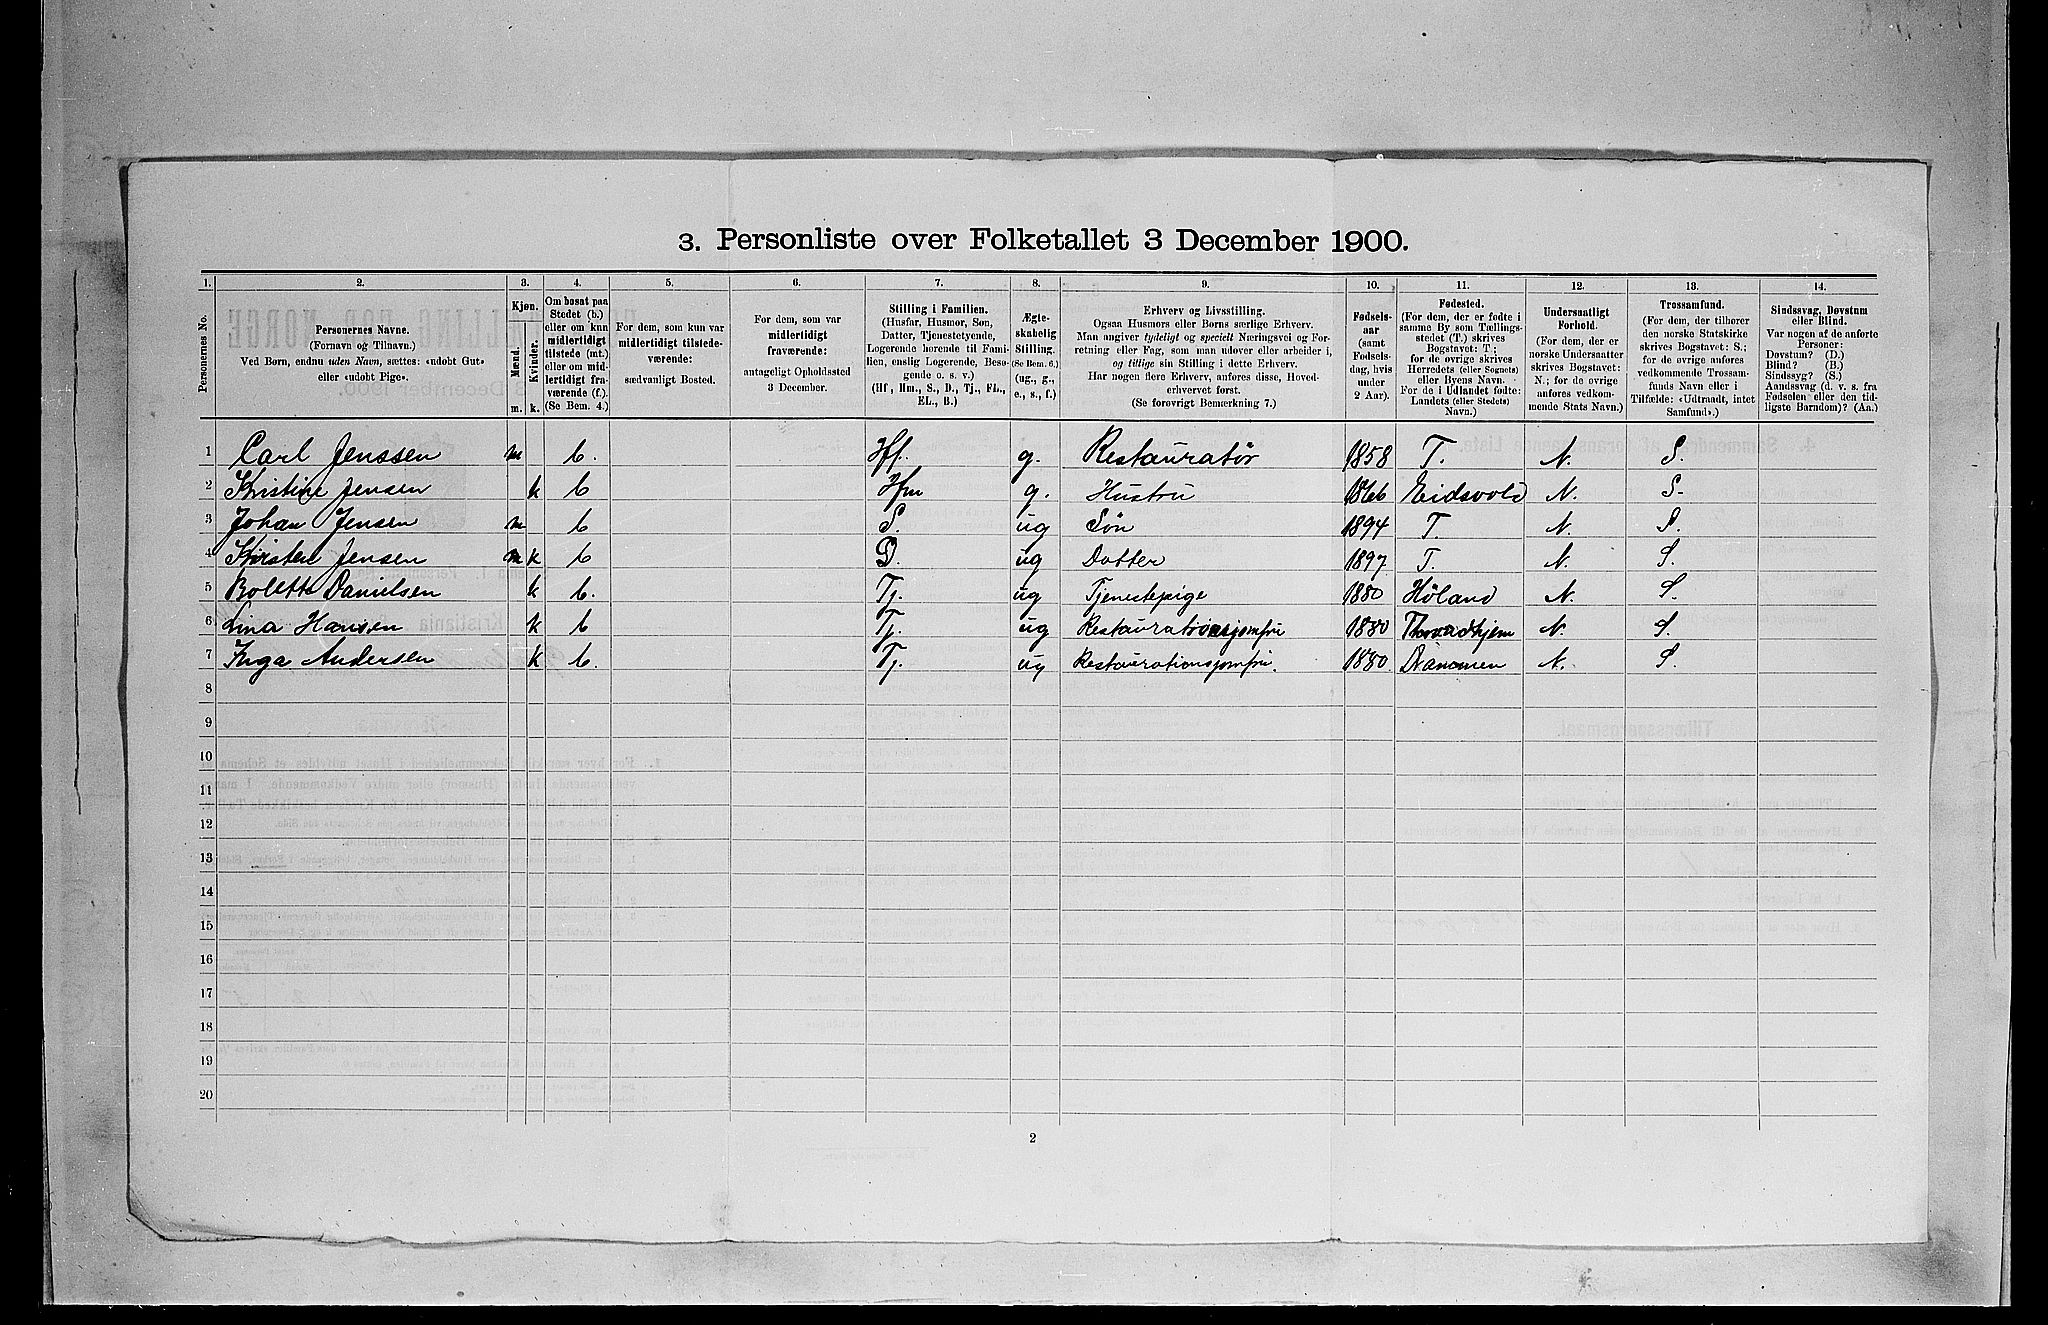 3. Personliste over Folketallet 3 December 1900.
1. 2. 3. 4. 5. 6. 7. 8. 9. 10. 11. 12. 13. 14.
Personernes No.
Personernes Navne.
(Fornavn og Tilnavn.)
Ved Børn, endnu uden Navn, sættes: «udøbt Gut»
eller «udøbt Pige».
Kjøn.
Mænd.
Kvinder.
m. k.
Om bosat paa
Stedet (b.)
eller om kun
midlertidigt
tilstede (mt.)
eller om mid-
lertidigt fra-
værende (f.).
(Se Bem. 4.)
For dem, som kun var
midlertidigt tilstede-
værende:
sædvanligt Bosted.
For dem, som var
midlertidigt
fraværende:
antageligt Opholdssted
3 December.
Stilling i Familien.
(Husfar, Husmor, Søn,
Datter, Tjenestetyende,
Logerende hørende til Fami-
lien, enslig Logerende, Besø-
gende o. s. v.)
(Hf, Hm., S., D., Tj., FL.,
EL., B.)
Ægte-
skabelig
Stilling.
(Se Bem. 6.)
(ug., g.,
e., s., f.)
Erhverv og Livsstilling.
Ogsaa Husmors eller Børns særlige Erhverv.
Man angiver tydeligt og specielt Næringsvei og For-
retning eller Fag, som man udøver eller arbeider i,
og tillige sin Stilling i dette Erhverv.
Har nogen flere Erhverv, anføres disse, Hoved-
erhvervet først.
(Se forøvrigt Bemærkning 7.)
Fødsels-
aar
(samt
Fødsels-
dag, hvis
under
2 Aar).
Fødested.
(For dem, der er fødte i
samme By som Tællings-
stedet (T.) skrives
Bogstavet: T.;
for de øvrige skrives
Herredets (eller Sognets)
eller Byens Navn.
For de i Udlandet fødte:
Landets (eller Stedets)
Navn.)
Undersaatligt
Forhold.
(For dem, der er
norske Undersaatter
skrives Bogstavet:
N.; for de øvrige
anføres vedkom-
mende Stats Navn.)
Trossamfund.
(For dem, der tilhører
den norske Statskirke
skrives Bogstavet: S.;
for de øvrige anføres
vedkommende Trossam-
funds Navn eller i
Tilfælde: «Udtraadt, intet
Samfund».)
Sindssvag, Døvstum
eller Blind.
Var nogen af de anførte
Personer:
Døvstum? (D.)
Blind? (B.)
Sindssyg? (S.)
Aandssvag (d. v. s. fra
Fødselen eller den tid-
ligste Barndom)? (Aa.)
1 Carl Jenssen m b. Hf. g. Restauratør 1858 T. N. S.
2 Kristine Jensen k b Hm g. Hustru 1866 Eidsvold N. S.
3 Johan Jensen m b S. ug Søn 1894 T. N. S.
4 Kirsten Jensen m k b D. ug Datter 1897 T. N. S.
5 Bolette Danielsen k b. Tj. ug Tjenestepige 1880 Høland N. S.
6 Lina Hansen k b Tj. ug 1880 N. S.
7 Inga Andersen k b. Tj. ug Restaurationsjomfru. 1880 Drammen N. S.
8
9
10
11
12
13
14
15
16
17
18
19
20
2